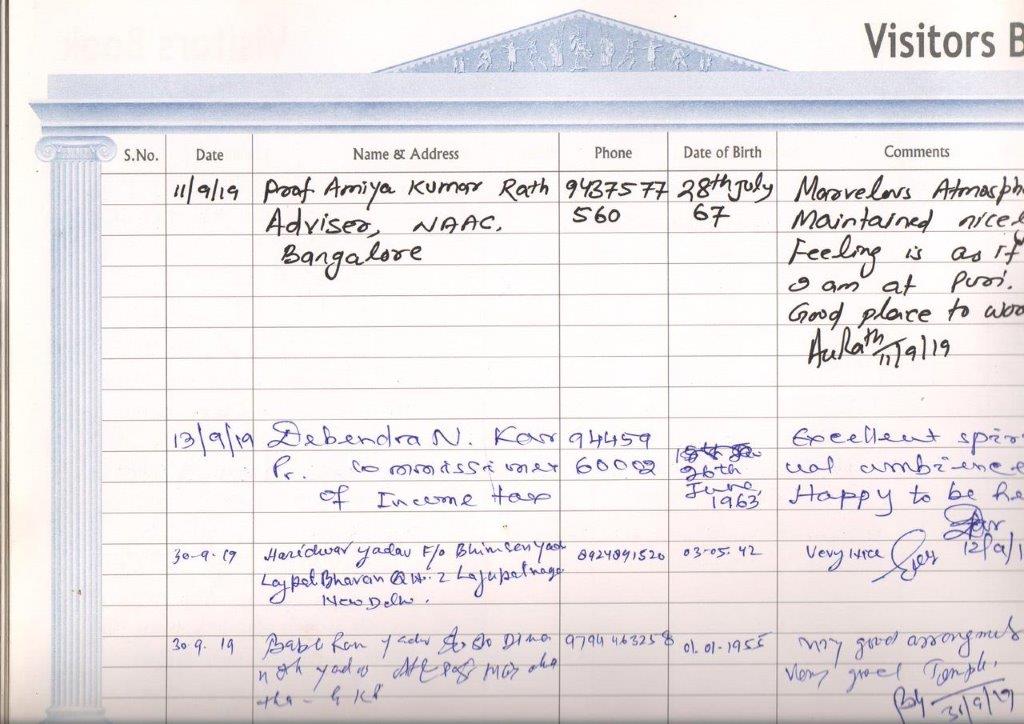 Visitors B
S.No. Date Name & Address Phone Date of Birth Comments
11/9/19 Prof Amiya Kumar Rath 9437577 28th July Marvelous Atmosph
Adviser, NAAC, 560 67 Maintained nicel
Bangalore Feeling is as if
I am at Puri.
Good place to wor
AuRath 11/9/19
13/9/19 Debendra N. Kar 94459 Excellent spiri
Pr. Commissioner 60002 26th ual ambience
of Income tax June, 1963 Happy to be he
12/9/1
30-9-19 Haridwar Yadav F/o Bhimsen Yad 8924091520 03-05-42 Very Nice
Lajpat Bhavan 2 Lajpatnaga
New Delhi.
30.9.19 Yadav S/o Dina 9794463258 01-01-1955 Very good
nath yadav Very good Temple.
31/9/19